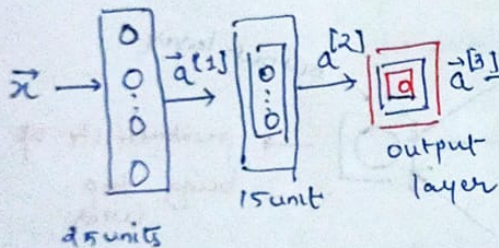 x⃗ → a⃗^[1] → a^[2] → a⃗^[3]
25units
15unit
output
layer